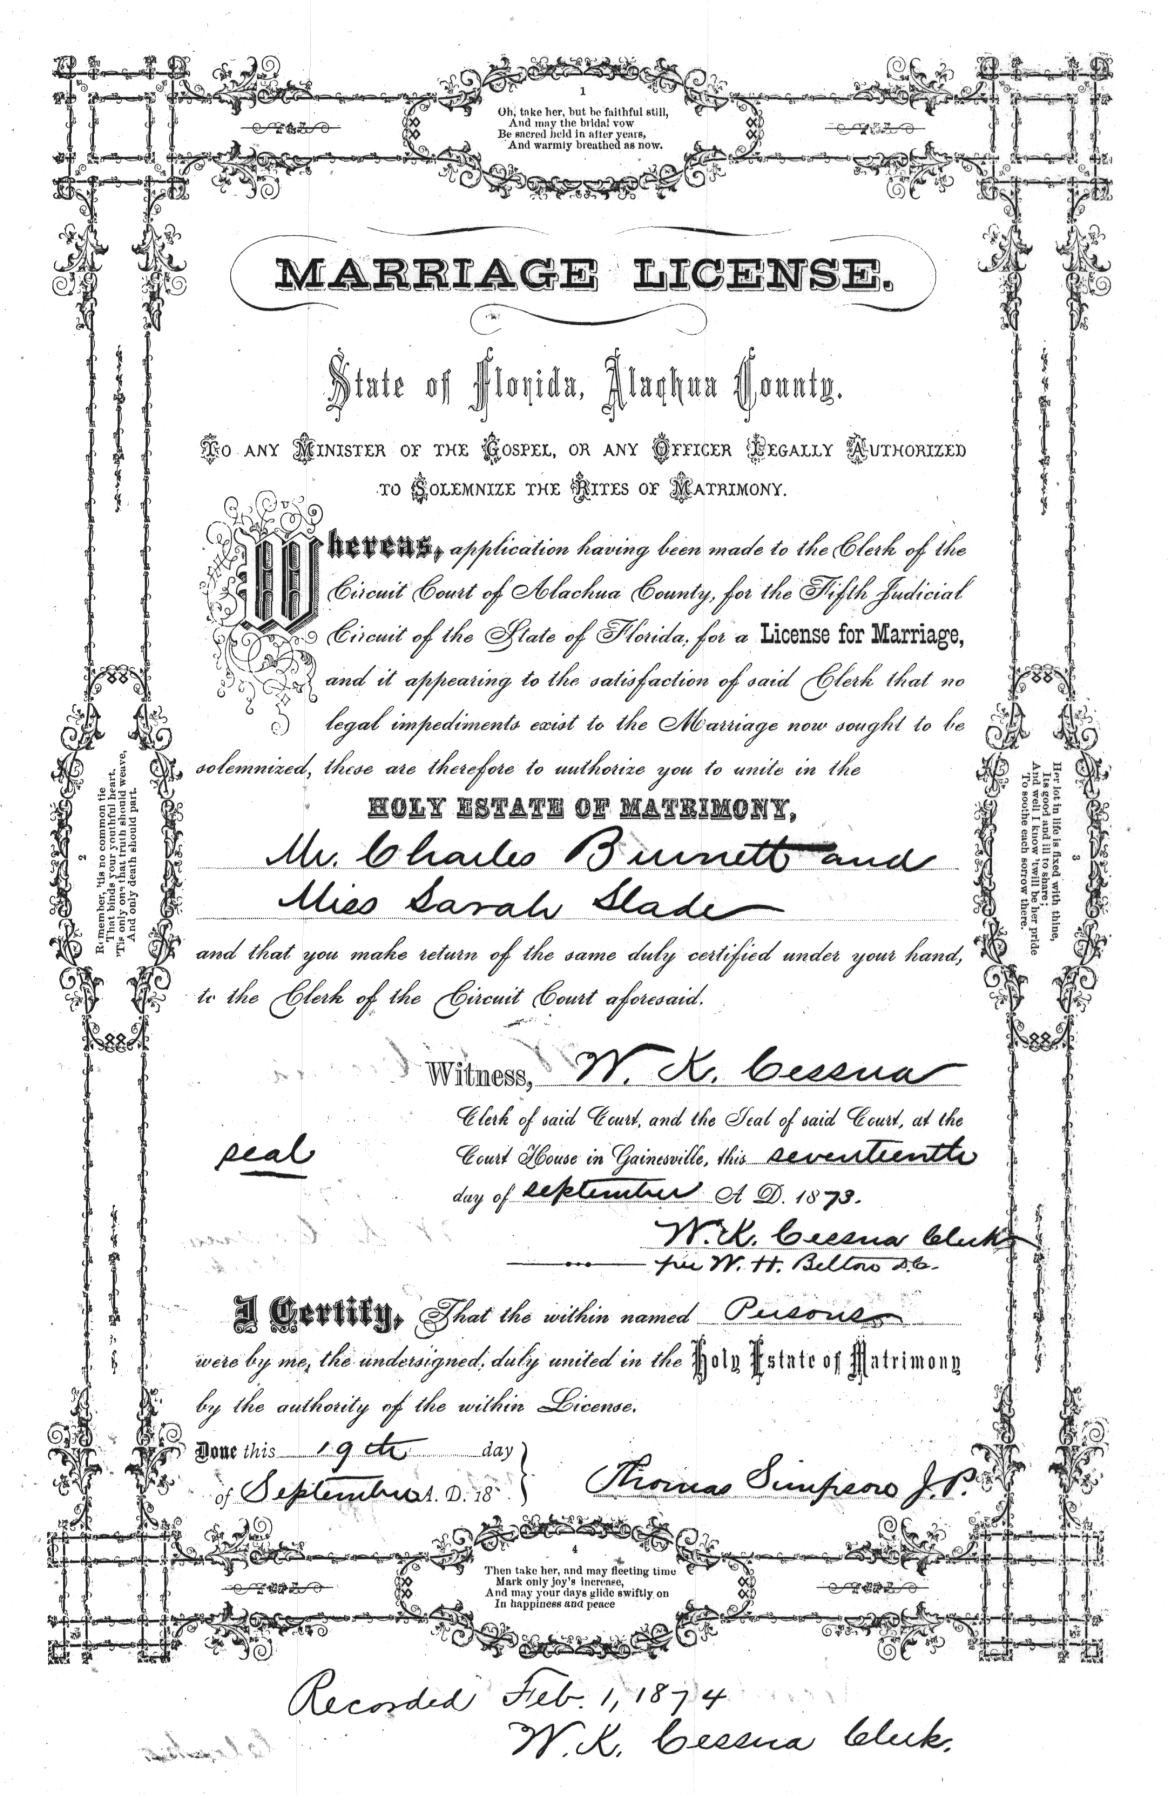 1
Oh, take her, but be faithful still,
And may the bridal vow
Be sacred held in after years,
And warmly breathed as now.
MARRIAGE LICENSE.
State of Florida, Alachua County.
To any Minister of the Gospel, or any Officer Legally Authorized
to Solemnize the Rites of Matrimony.
Whereas, application having been made to the Clerk of the
Circuit Court of Alachua County, for the Fifth Judicial
Circuit of the State of Florida, for a License for Marriage,
and it appearing to the satisfaction of said Clerk that no
legal impediments exist to the Marriage now sought to be
solemnized, these are therefore to authorize you to unite in the
HOLY ESTATE OF MATRIMONY,
Mr. Charles Burnett and
Miss Sarah Slade
and that you make return of the same duly certified under your hand,
to the Clerk of the Circuit Court aforesaid.
2
Remember, 'tis no common tie
That binds your youthful heart.
'Tis only one that truth should weave,
And only death should part.
3
Her lot in life is fixed with thine,
Its good and ill to share;
And well I know 'twill be her pride
To soothe each sorrow there.
Witness, W. K. Cessna
Clerk of said Court, and the Seal of said Court, at the
seal
Court House in Gainesville, this seventeenth
day of September A D. 1873.
W. K. Cessna Clerk
per W. H. Belton D.C.
I Certify, That the within named Persons
were by me, the undersigned, duly united in the Holy Estate of Matrimony
by the authority of the within License.
Done this 19th day
of September A. D. 18
Thomas Simpson J.P.
4
Then take her, and may fleeting time
Mark only joy's increase,
And may your days glide swiftly on
In happiness and peace
Recorded Feb. 1, 1874
W. K. Cessna Clerk.